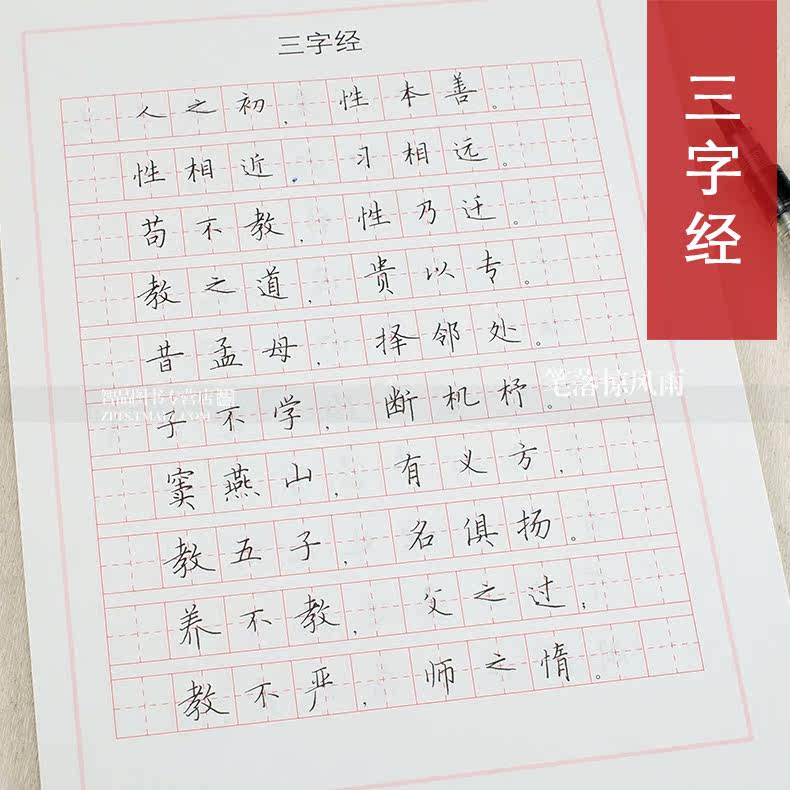 三字经
人之初，性本善。
性相近，习相远。
苟不教，性乃迁。
教之道，贵以专。
昔孟母，择邻处。
子不学，断机杼。
窦燕山，有义方，
教五子，名俱扬。
养不教，父之过；
教不严，师之惰。
三字经
智品图书专营店
ZPTS.TMALL.COM
笔落惊风雨